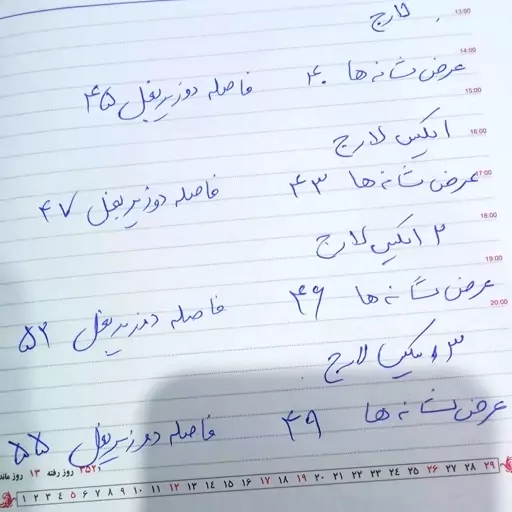 13:00
لارج
14:00
عرض شانه ها ۴۰ فاصله دو زیر بغل ۴۵
15:00
ایکس لارج
16:00
عرض شانه ها ۴۳ فاصله دو زیر بغل ۴۷
17:00
۲ ایکس لارج
18:00
19:00
عرض شانه ها ۴۶ فاصله دو زیر بغل ۵۲
20:00
۳ ایکس لارج
عرض شانه ها ۴۹ فاصله دو زیر بغل ۵۵
۳۵۲ روز رفته ۱۳ روز مانده
۱ ۲ ۳ ۴ ۵ ۶ ۷ ۸ ۹ ۱۰ ۱۱ ۱۲ ۱۳ ۱۴ ۱۵ ۱۶ ۱۷ ۱۸ ۱۹ ۲۰ ۲۱ ۲۲ ۲۳ ۲۴ ۲۵ ۲۶ ۲۷ ۲۸ ۲۹